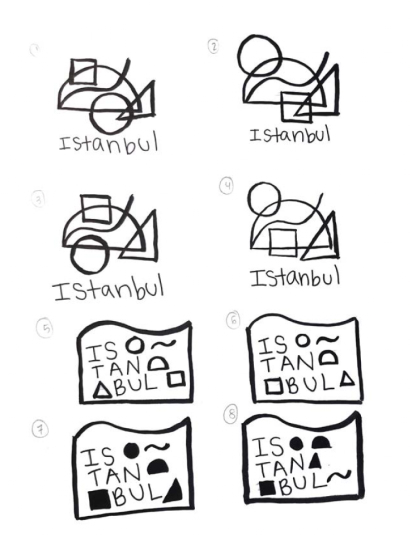 1
Istanbul
2
Istanbul
3
Istanbul
4
Istanbul
5
IS
TAN
BUL
6
IS
TAN
BUL
7
IS
TAN
BUL
8
IS
TAN
BUL